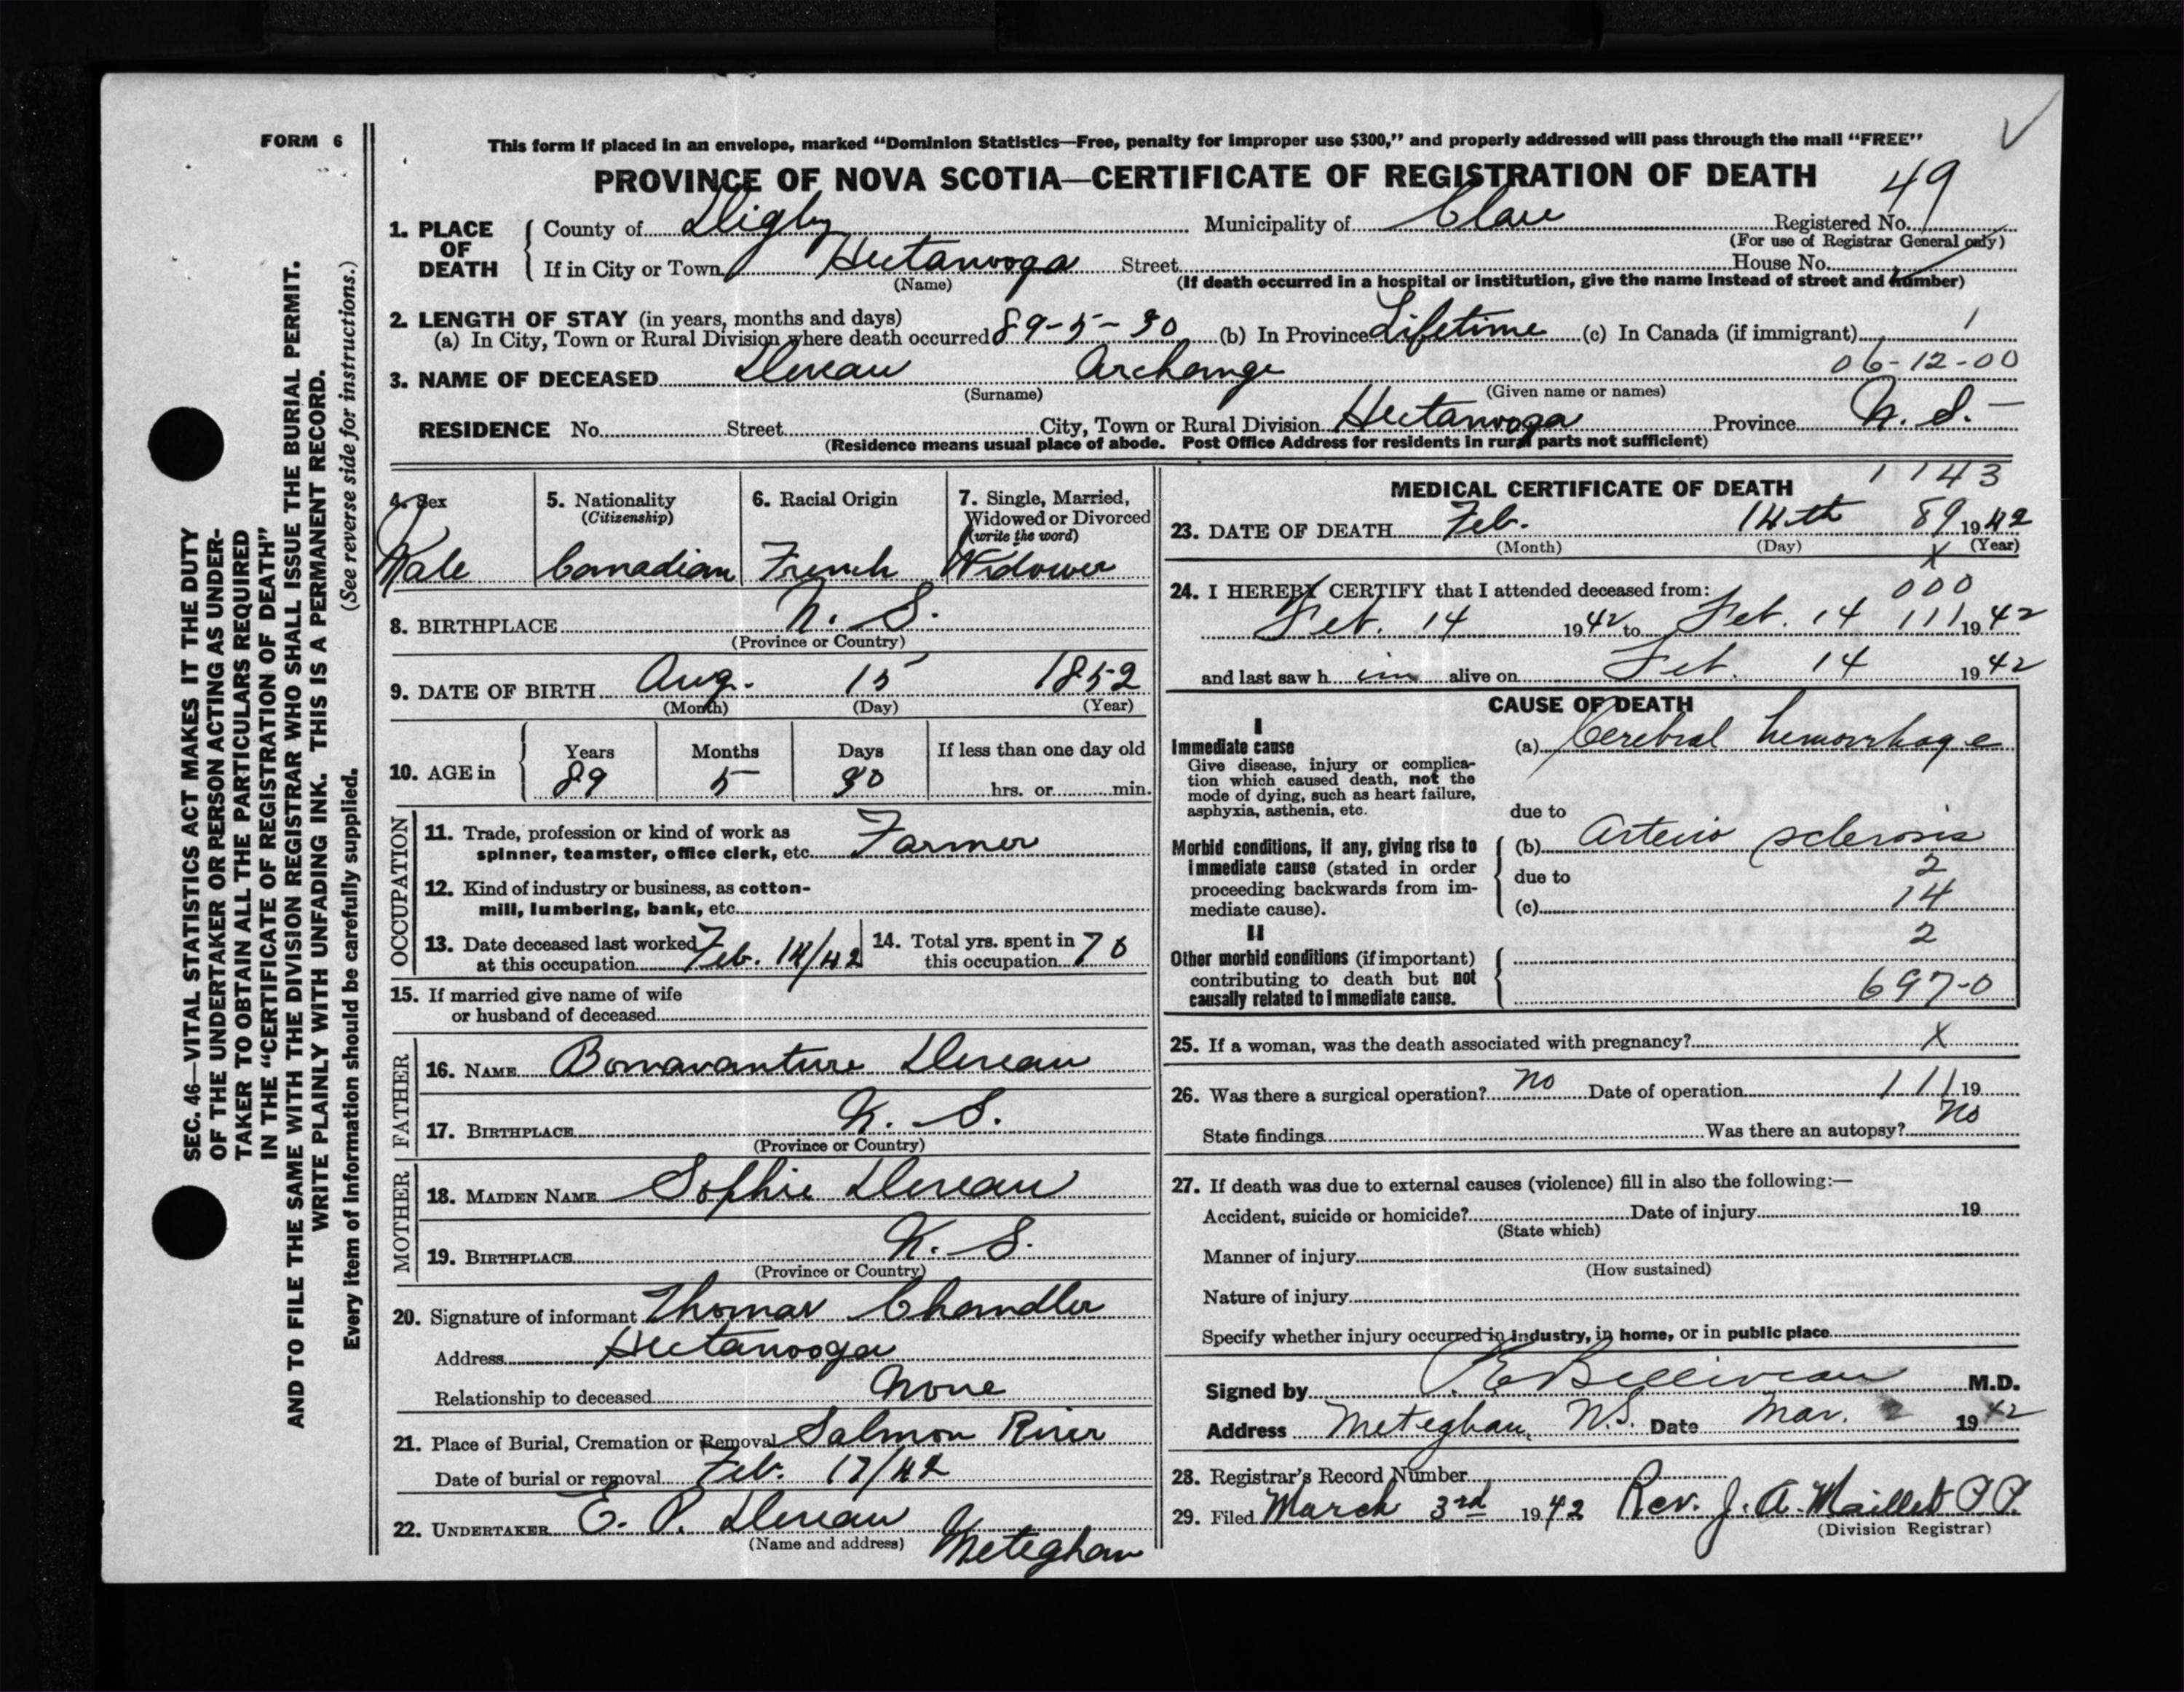 FORM 6
This form if placed in an envelope, marked "Dominion Statistics—Free, penalty for improper use $300," and properly addressed will pass through the mail "FREE"
PROVINCE OF NOVA SCOTIA—CERTIFICATE OF REGISTRATION OF DEATH
49
1. PLACE OF DEATH
County of Digby Municipality of Clare Registered No.
(For use of Registrar General only)
If in City or Town Hectanooga Street House No.
(Name) (If death occurred in a hospital or institution, give the name instead of street and number)
2. LENGTH OF STAY (in years, months and days)
(a) In City, Town or Rural Division where death occurred 89-5-30 (b) In Province Lifetime (c) In Canada (if immigrant) 1
06-12-00
3. NAME OF DECEASED Deveau Archange
(Surname) (Given name or names)
RESIDENCE No. Street City, Town or Rural Division Hectanooga Province N. S. —
(Residence means usual place of abode. Post Office Address for residents in rural parts not sufficient)
4. Sex
Male
5. Nationality
(Citizenship)
Canadian
6. Racial Origin
French
7. Single, Married,
Widowed or Divorced
(write the word)
Widower
8. BIRTHPLACE N. S.
(Province or Country)
9. DATE OF BIRTH Aug. 15 1852
(Month) (Day) (Year)
10. AGE in
Years Months Days If less than one day old
89 5 30 hrs. or min.
OCCUPATION
11. Trade, profession or kind of work as
spinner, teamster, office clerk, etc. Farmer
12. Kind of industry or business, as cotton-
mill, lumbering, bank, etc.
13. Date deceased last worked
at this occupation Feb. 14/42
14. Total yrs. spent in
this occupation 70
15. If married give name of wife
or husband of deceased
FATHER
16. NAME Bonavanture Deveau
17. BIRTHPLACE N. S.
(Province or Country)
MOTHER
18. MAIDEN NAME Sophie Deveau
19. BIRTHPLACE N. S.
(Province or Country)
20. Signature of informant Thomas Chandler
Address Hectanooga
Relationship to deceased None
21. Place of Burial, Cremation or Removal Salmon River
Date of burial or removal Feb. 17/42
22. UNDERTAKER E. P. Deveau
(Name and address) Meteghan
1143
MEDICAL CERTIFICATE OF DEATH
23. DATE OF DEATH Feb. 14th 89 1942
(Month) (Day) X (Year)
24. I HEREBY CERTIFY that I attended deceased from: 000
Feb. 14 1942 to Feb. 14 111 1942
and last saw h im alive on Feb. 14 1942
CAUSE OF DEATH
I
Immediate cause
Give disease, injury or complica-
tion which caused death, not the
mode of dying, such as heart failure,
asphyxia, asthenia, etc.
(a) Cerebral hemorrhage
due to
Morbid conditions, if any, giving rise to
immediate cause (stated in order
proceeding backwards from im-
mediate cause).
(b) Arterio sclerosis
2
due to
14
(c)
II
2
Other morbid conditions (if important)
contributing to death but not
causally related to immediate cause.
697-0
25. If a woman, was the death associated with pregnancy? X
26. Was there a surgical operation? no Date of operation 111 19
State findings Was there an autopsy? no
27. If death was due to external causes (violence) fill in also the following:—
Accident, suicide or homicide? Date of injury 19
(State which)
Manner of injury
(How sustained)
Nature of injury
Specify whether injury occurred in industry, in home, or in public place
Signed by Belliveau M.D.
Address Meteghan, N.S. Date Mar. 1942
28. Registrar's Record Number
29. Filed March 3rd 1942 Rev. J. A. Maillet P.P.
(Division Registrar)
SEC. 46—VITAL STATISTICS ACT MAKES IT THE DUTY
OF THE UNDERTAKER OR PERSON ACTING AS UNDER-
TAKER TO OBTAIN ALL THE PARTICULARS REQUIRED
IN THE "CERTIFICATE OF REGISTRATION OF DEATH"
AND TO FILE THE SAME WITH THE DIVISION REGISTRAR WHO SHALL ISSUE THE BURIAL PERMIT.
WRITE PLAINLY WITH UNFADING INK. THIS IS A PERMANENT RECORD.
Every item of information should be carefully supplied. (See reverse side for instructions.)